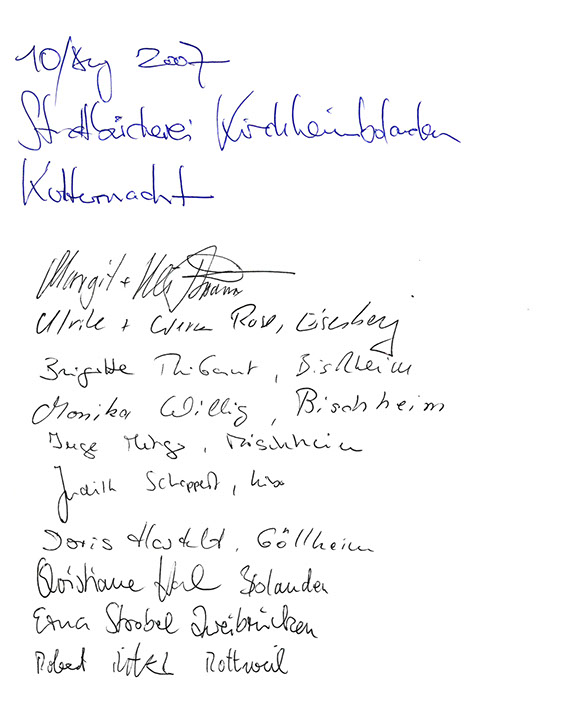 10/Aug 2007
Stadtbücherei Kirchheimbolanden
Kulturnacht
Margit +
Ulrike + Rose, Eisenberg
Brigitte Thibaut, Bischheim
Monika Willig, Bischheim
Inge , Bischheim
Judith Scheppert, Kibo
Doris , Göllheim
Christiane Bolanden
Erna Strobel Zweibrücken
Robert Rottweil